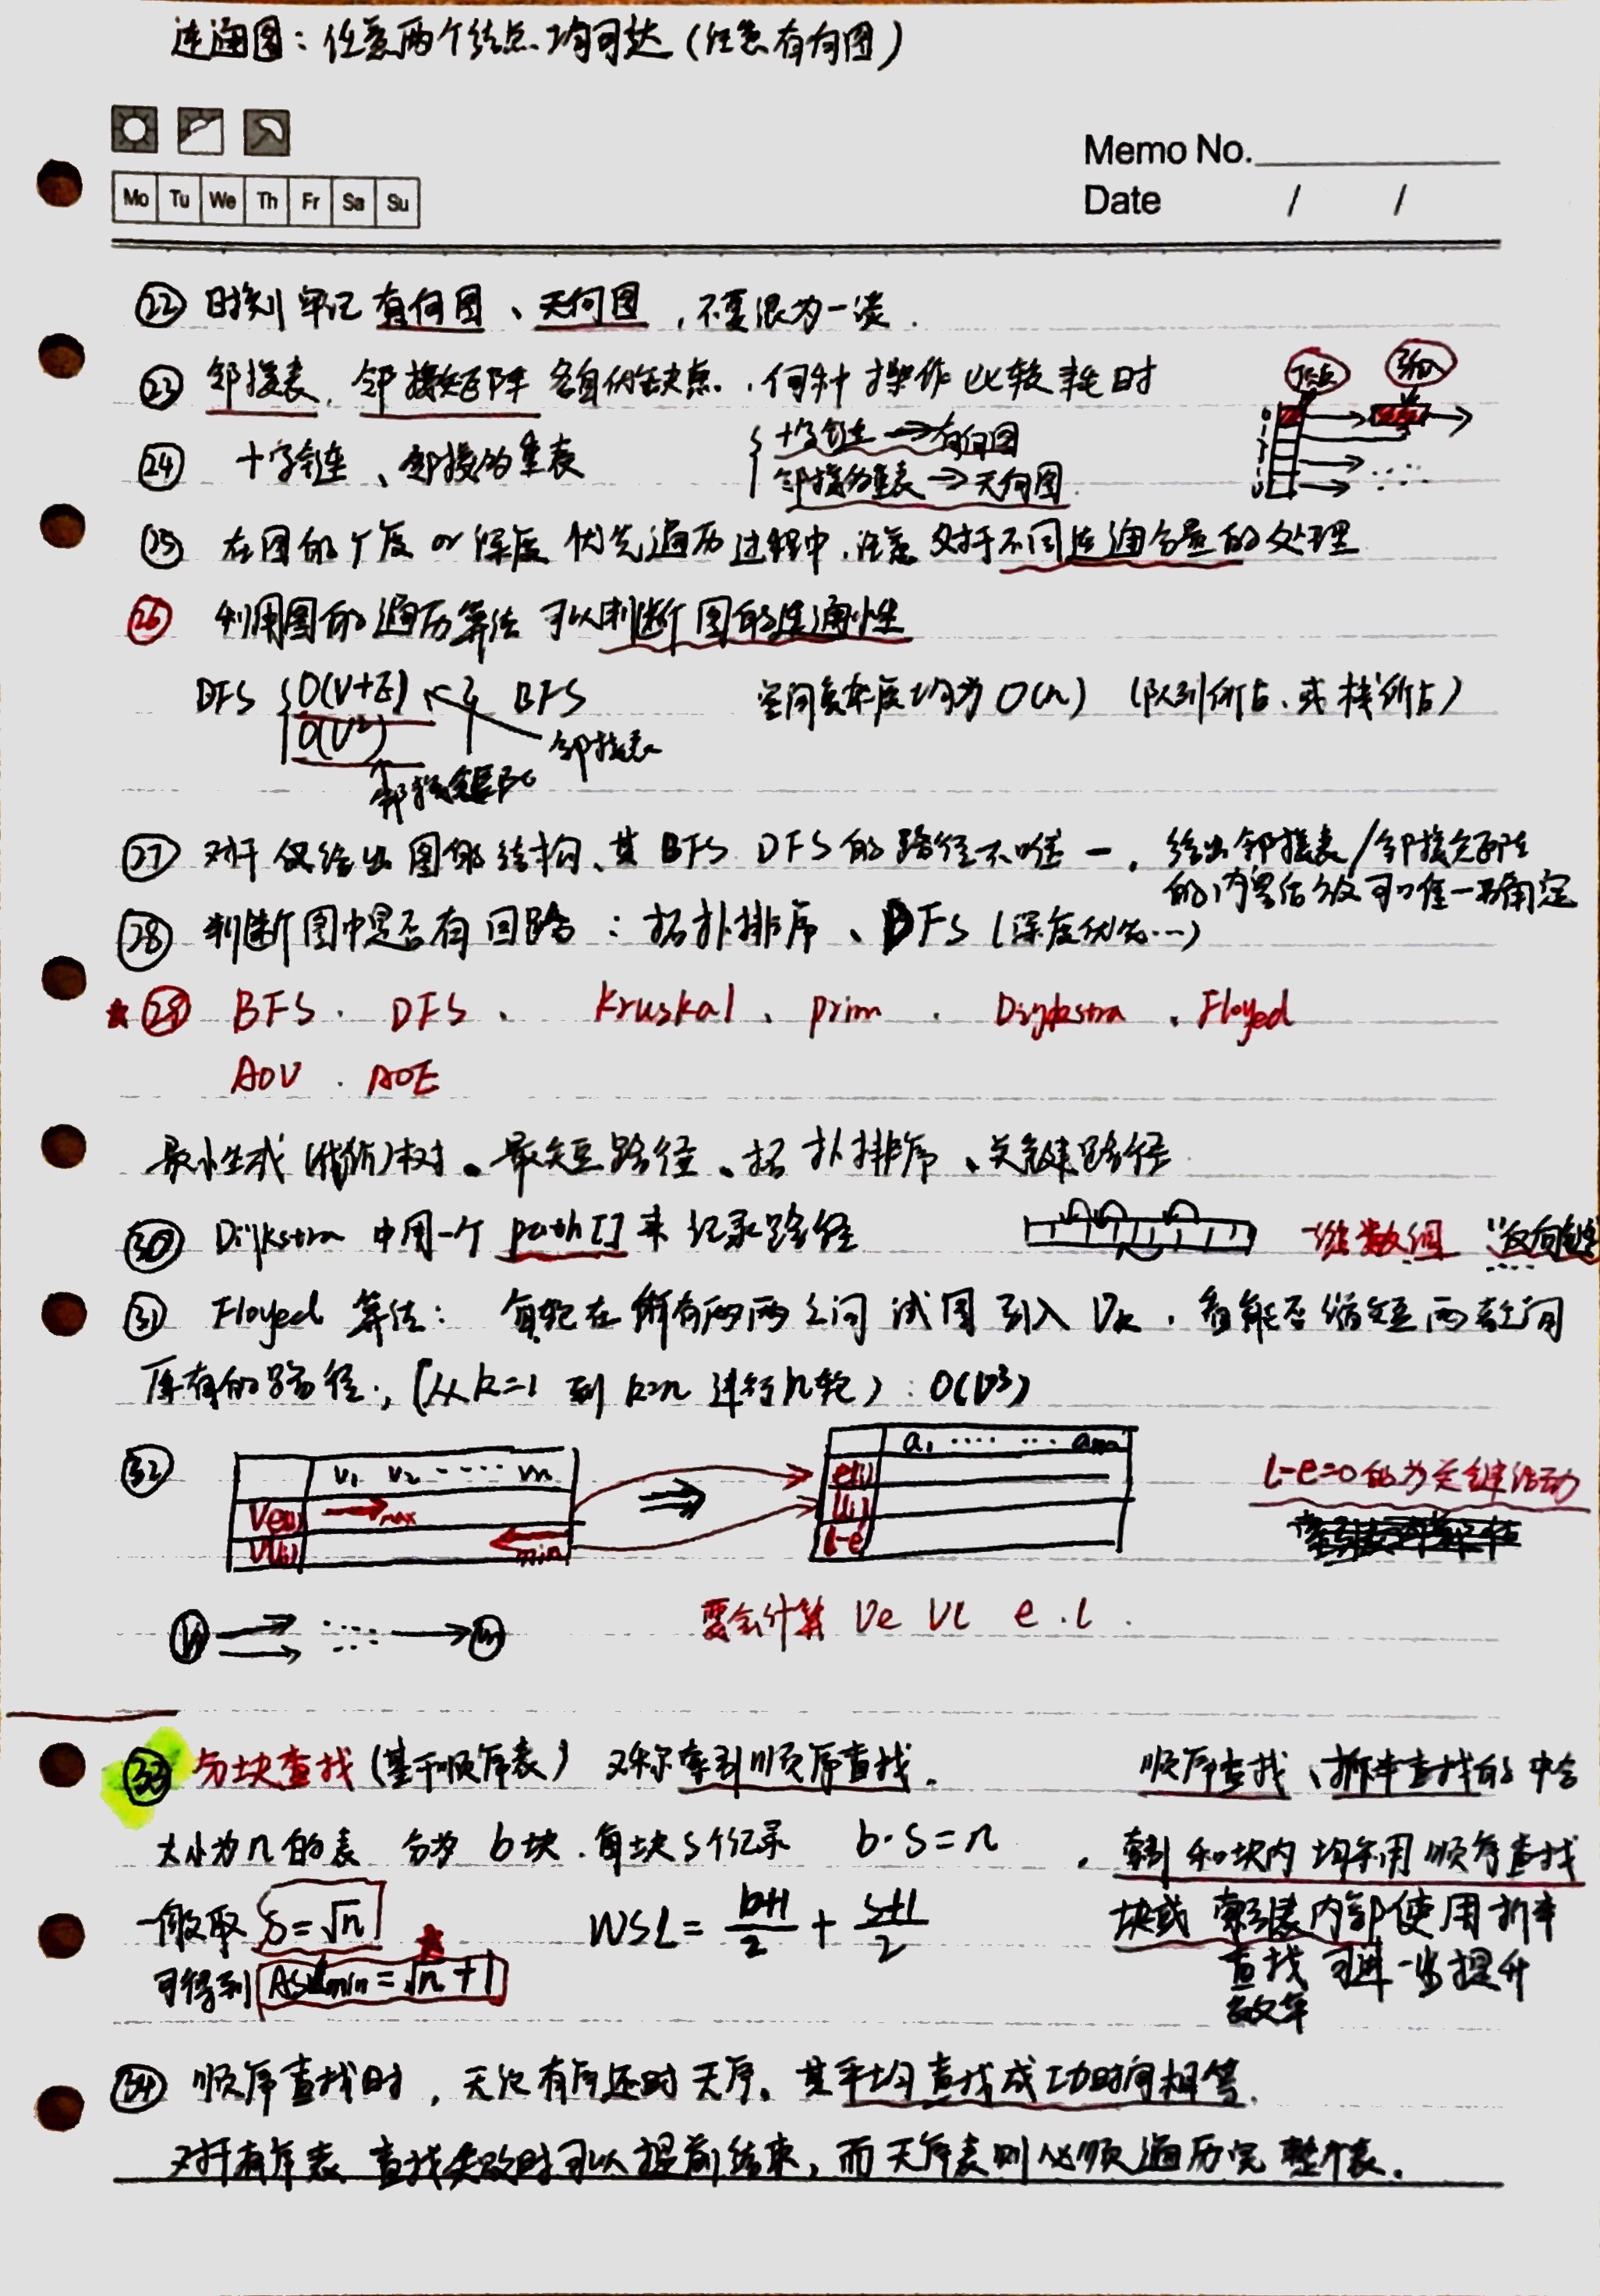 连通图：任意两个结点均可达（任意有向图）
Memo No.
Mo Tu We Th Fr Sa Su
Date / /
㉒ 时刻牢记有向图、无向图，不要混为一谈.
㉓ 邻接表，邻接矩阵各自优缺点，何种操作比较耗时
顶点 弧
㉔ 十字链、邻接多重表
十字链 → 有向图
邻接多重表 → 无向图
㉕ 在图的广度 or 深度优先遍历过程中，注意对于不同连通分量的处理
㉖ 利用图的遍历算法可以判断图的连通性
DFS O(V+E) BFS 空间复杂度均为 O(n) （队列价占、或栈价占）
O(V²) 邻接表
邻接矩阵
㉗ 对于仅给出图的结构、其 BFS DFS 的路径不唯一，给出邻接表/邻接矩阵
的内置后方可以唯一确定
㉘ 判断图中是否有回路：拓扑排序、DFS（深度优先…）
㉙ BFS、DFS、Kruskal、prim、Dijkstra、Floyed
AOV、AOE
最小生成（代价）树、最短路径、拓扑排序、关键路径
㉚ Dijkstra 中用一个 path[] 来记录路径 一维数组 "反向链
㉛ Floyed 算法：每轮在所有两两之间试图引入 Vk，看能否缩短两点之间
原有的路径；（从k=1 到 k=n 进行n轮）：O(V³)
㉜ v₁ v₂ ····· vn a₁ ···· ··· am
Ve(i) max e(i) l-e=0的为关键活动
Vl(i) min l(i)
l-e
需会计算 Ve Vl e . l .
V₁ ···· Vn
㉝ 分块查找（基于顺序表） 又称索引顺序查找. 顺序查找、折半查找的中合
大小为 n 的表 分为 b 块. 每块 s 个记录 b·s=n ，索引和块内均采用顺序查找
一般取 s=√n WSL= b+1/2 + s+1/2 块或索引表内部使用折半
可得到 ASLmin=√n+1 查找可进一步提升
效率
㉞ 顺序查找时，无论有序还时无序，其平均查找成功时间相等.
对于有序表 查找失败时可以提前结束，而无序表则必须遍历完整个表.